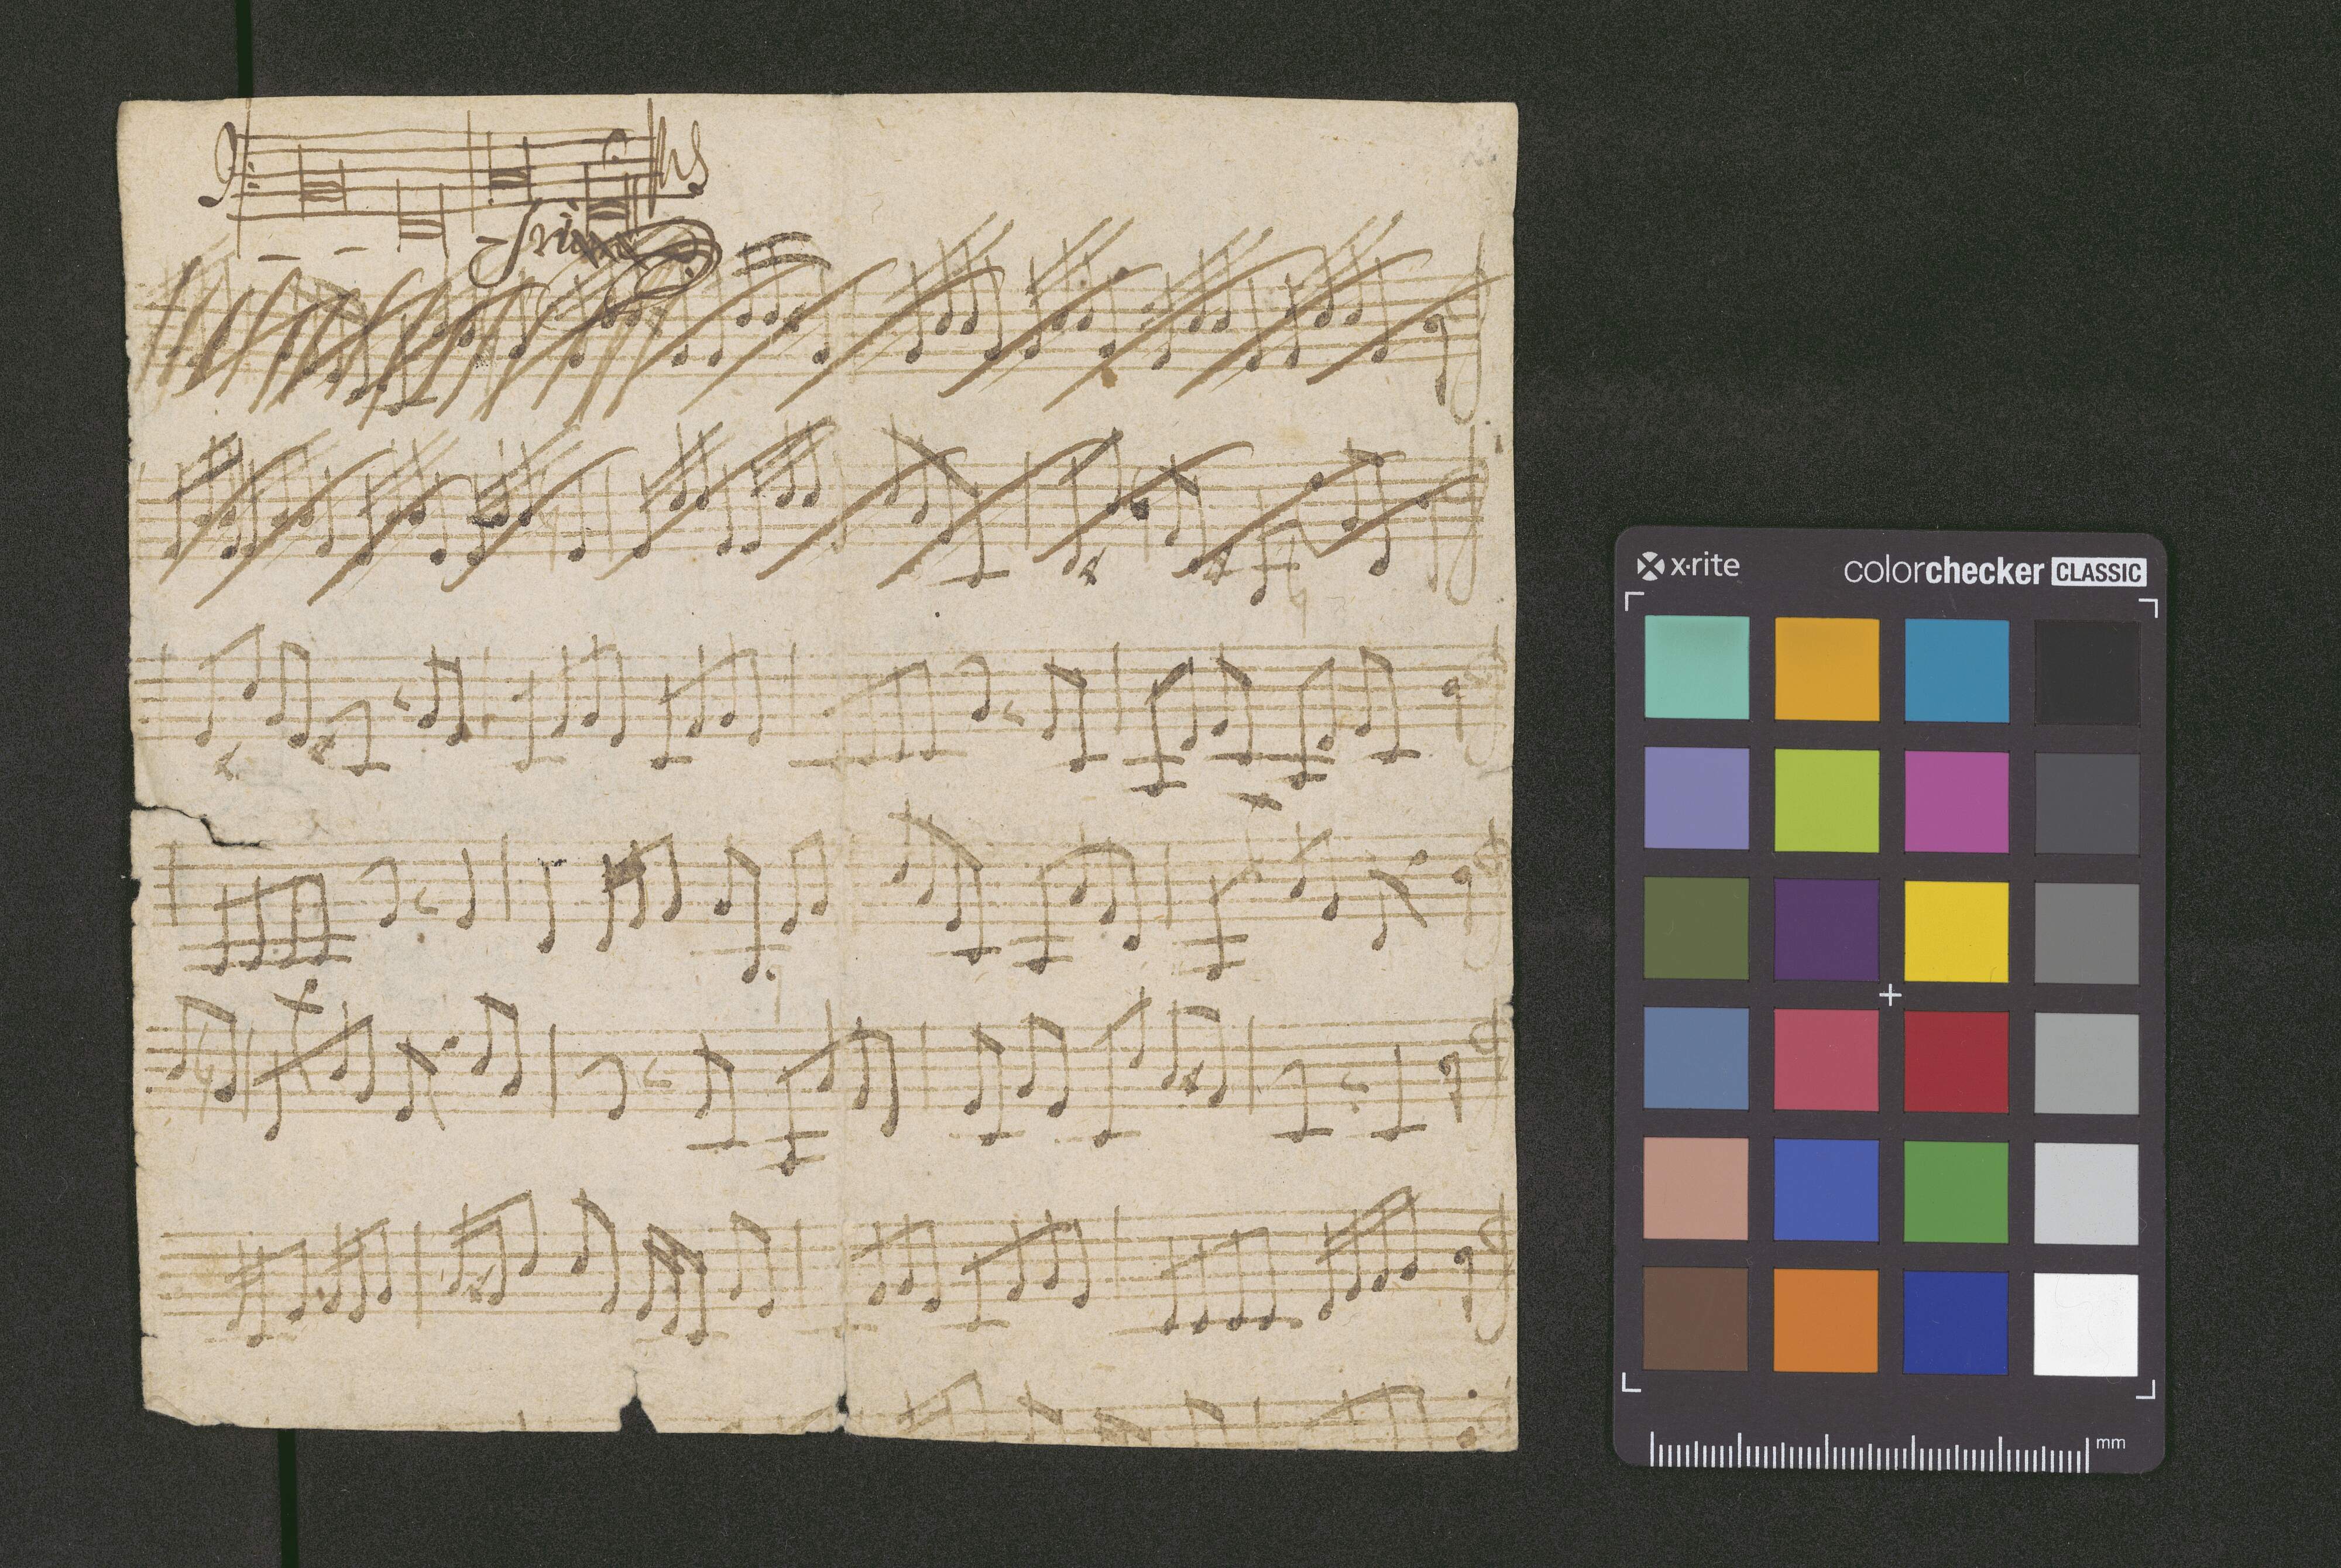 Fine
x·rite
colorchecker CLASSIC
mm